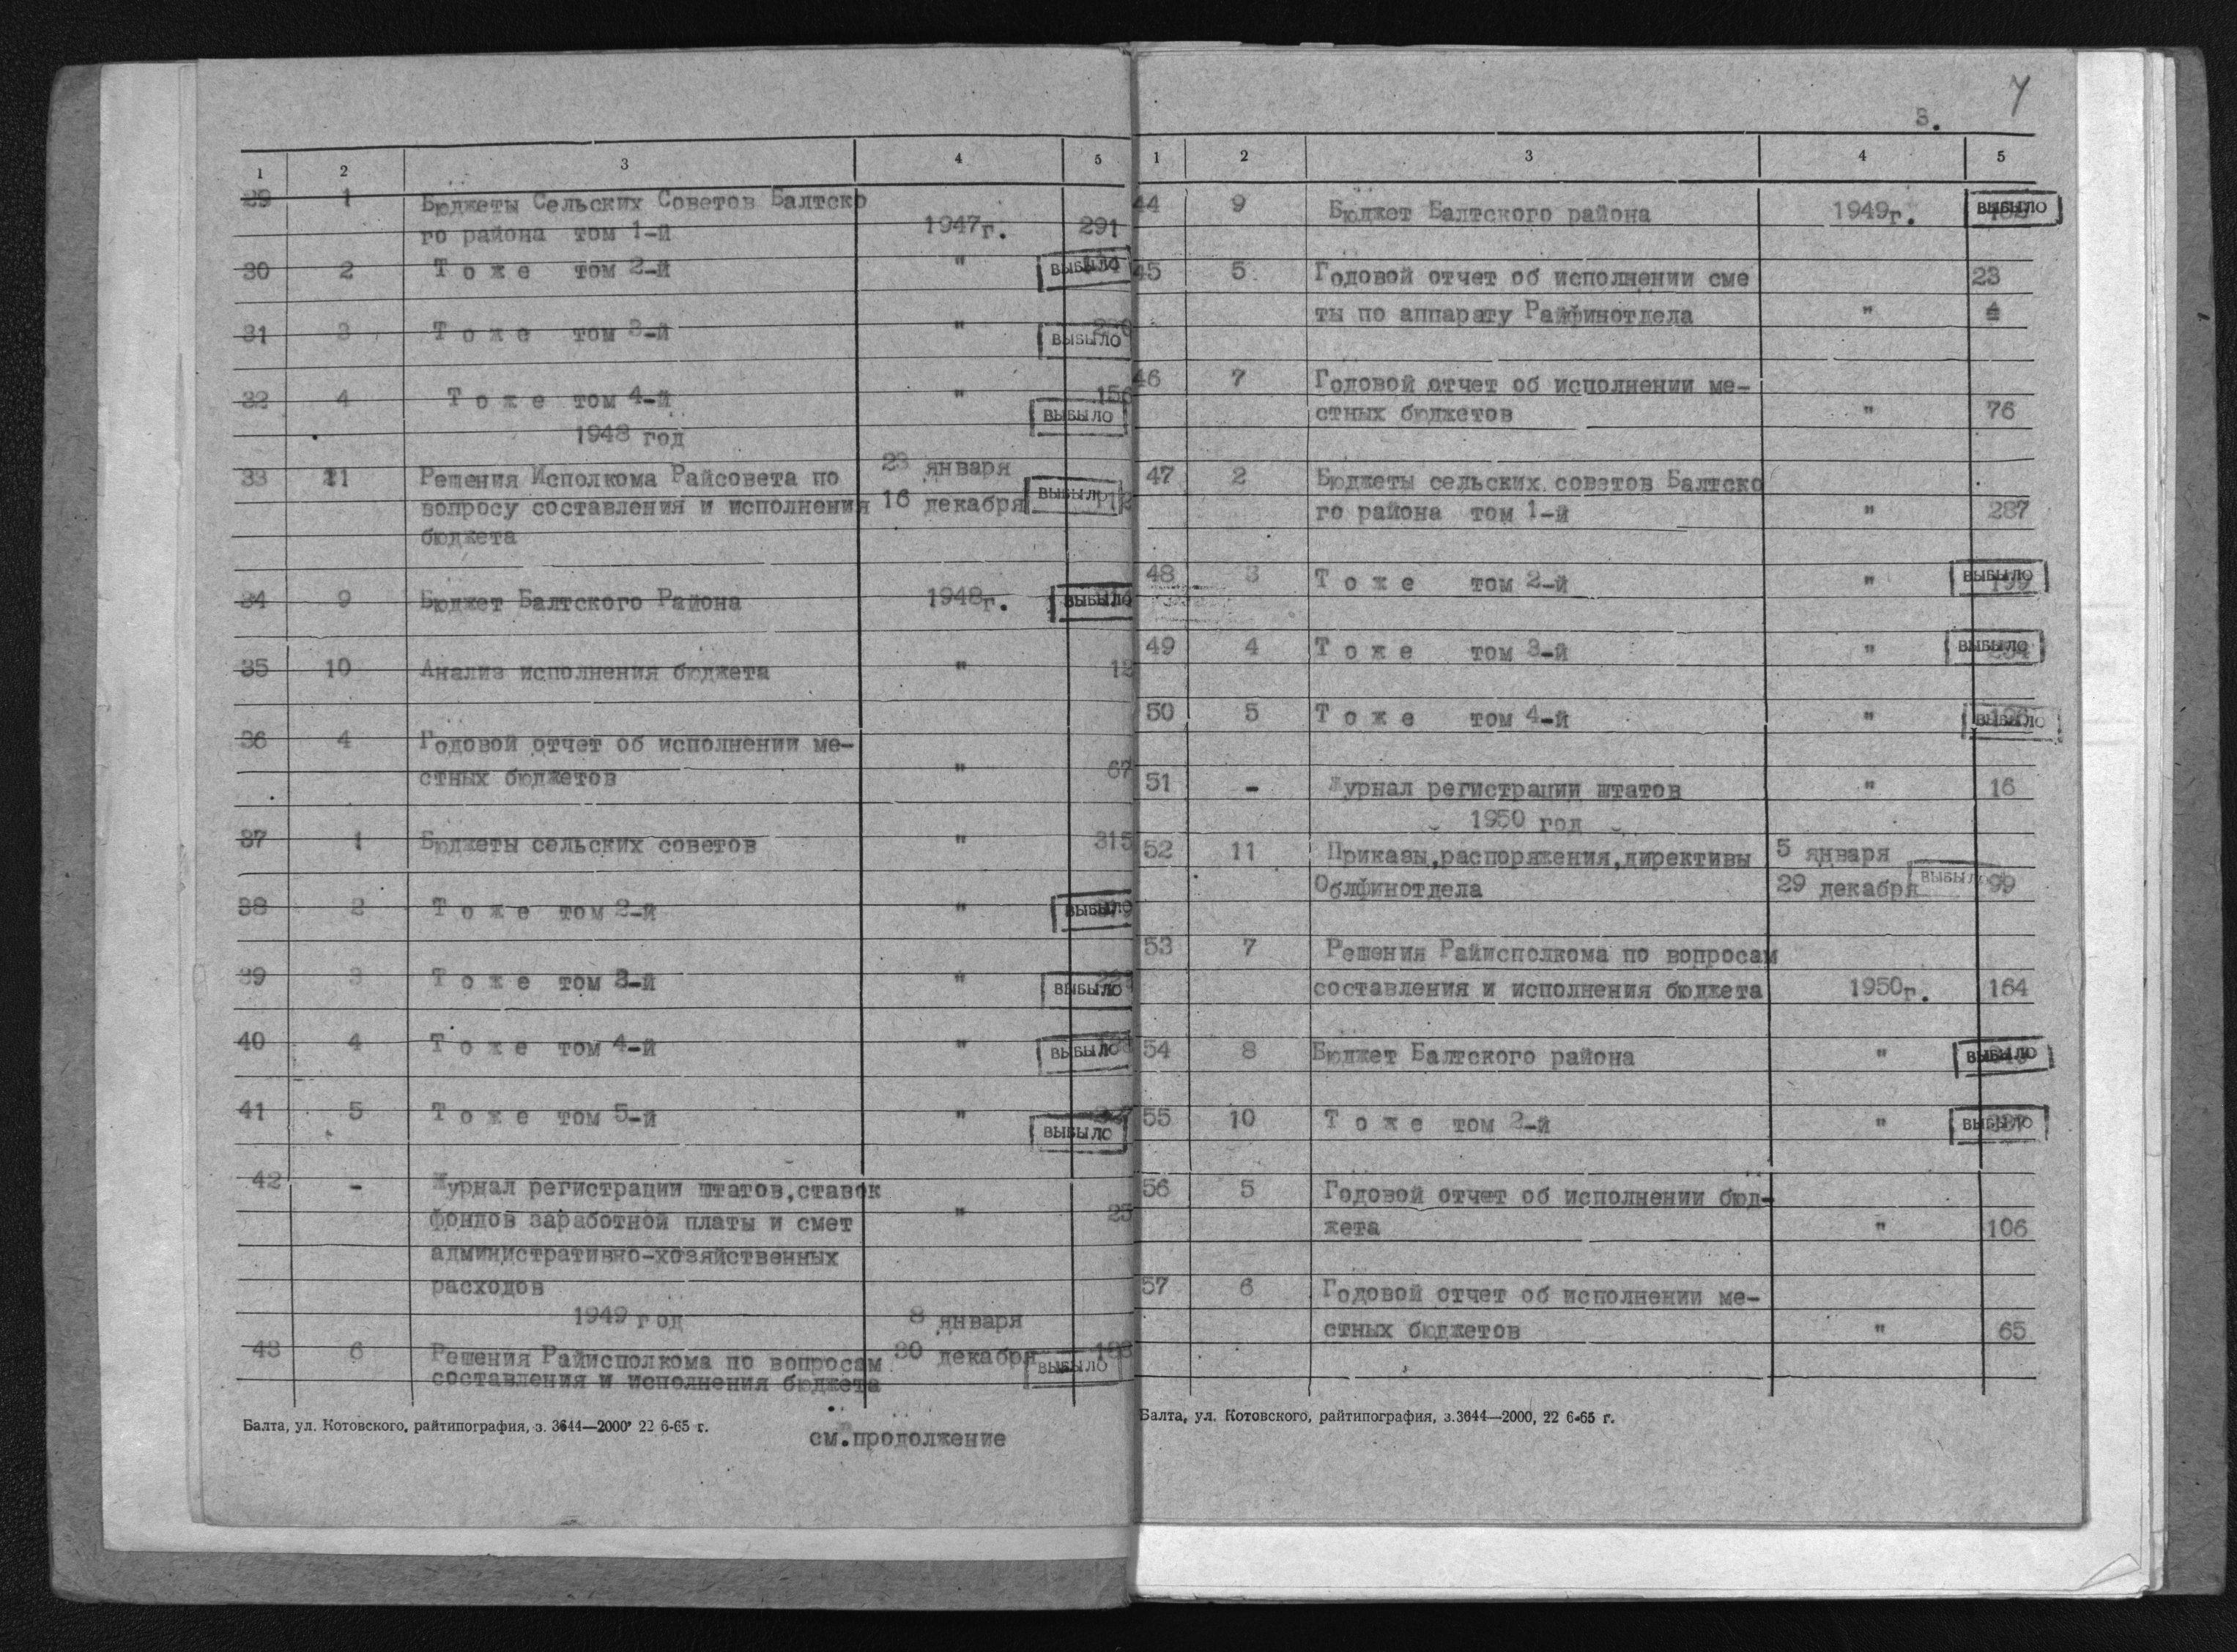 1 2 3 4 5
29 1 Бюджеты Сельских Советов Балтско
го района том 1-й 1947г. 291
30 2 Т о ж е том 2-й " ВЫБЫЛО
31 3 Т о ж е том 3-й " ВЫБЫЛО
32 4 Т о ж е том 4-й " 156
ВЫБЫЛО
1948 год
33 11 Решения Исполкома Райсовета по 23 января
вопросу составления и исполнения 16 декабря ВЫБЫЛО
бюджета
34 9 Бюджет Балтского Района 1948г. ВЫБЫЛО
35 10 Анализ исполнения бюджета "
36 4 Годовой отчет об исполнении ме-
стных бюджетов " 67
37 1 Бюджеты сельских советов " 315
38 2 Т о ж е том 2-й " ВЫБЫЛО
39 3 Т о ж е том 3-й " ВЫБЫЛО
40 4 Т о ж е том 4-й " ВЫБЫЛО
41 5 Т о ж е том 5-й "
ВЫБЫЛО
42 - Журнал регистрации штатов,ставок
фондов заработной платы и смет " 25
административно-хозяйственных
расходов
1949 год 8 января
43 6 Решения Райисполкома по вопросам 30 декабря ВЫБЫЛО
составления и исполнения бюджета
Балта, ул. Котовского, райтипография, з. 3644—2000 22 6-65 г.
см.продолжение
7
3.
1 2 3 4 5
44 9 Бюджет Балтского района 1949г. ВЫБЫЛО
45 5 Годовой отчет об исполнении сме 23
ты по аппарату Райфинотдела "
46 7 Годовой отчет об исполнении ме-
стных бюджетов " 76
47 2 Бюджеты сельских советов Балтско
го района том 1-й " 287
48 3 Т о ж е том 2-й " ВЫБЫЛО
199
49 4 Т о ж е том 3-й " ВЫБЫЛО
50 5 Т о ж е том 4-й " ВЫБЫЛО
51 - Журнал регистрации штатов " 16
1950 год
52 11 Приказы,распоряжения,директивы 5 января
Облфинотдела 29 декабря ВЫБЫЛО 99
53 7 Решения Райисполкома по вопросам
составления и исполнения бюджета 1950г. 164
54 8 Бюджет Балтского района " ВЫБЫЛО
55 10 Т о ж е том 2-й " ВЫБЫЛО
56 5 Годовой отчет об исполнении бюд-
жета " 106
57 6 Годовой отчет об исполнении ме-
стных бюджетов " 65
Балта, ул. Котовского, райтипография, з.3644—2000, 22 6-65 г.